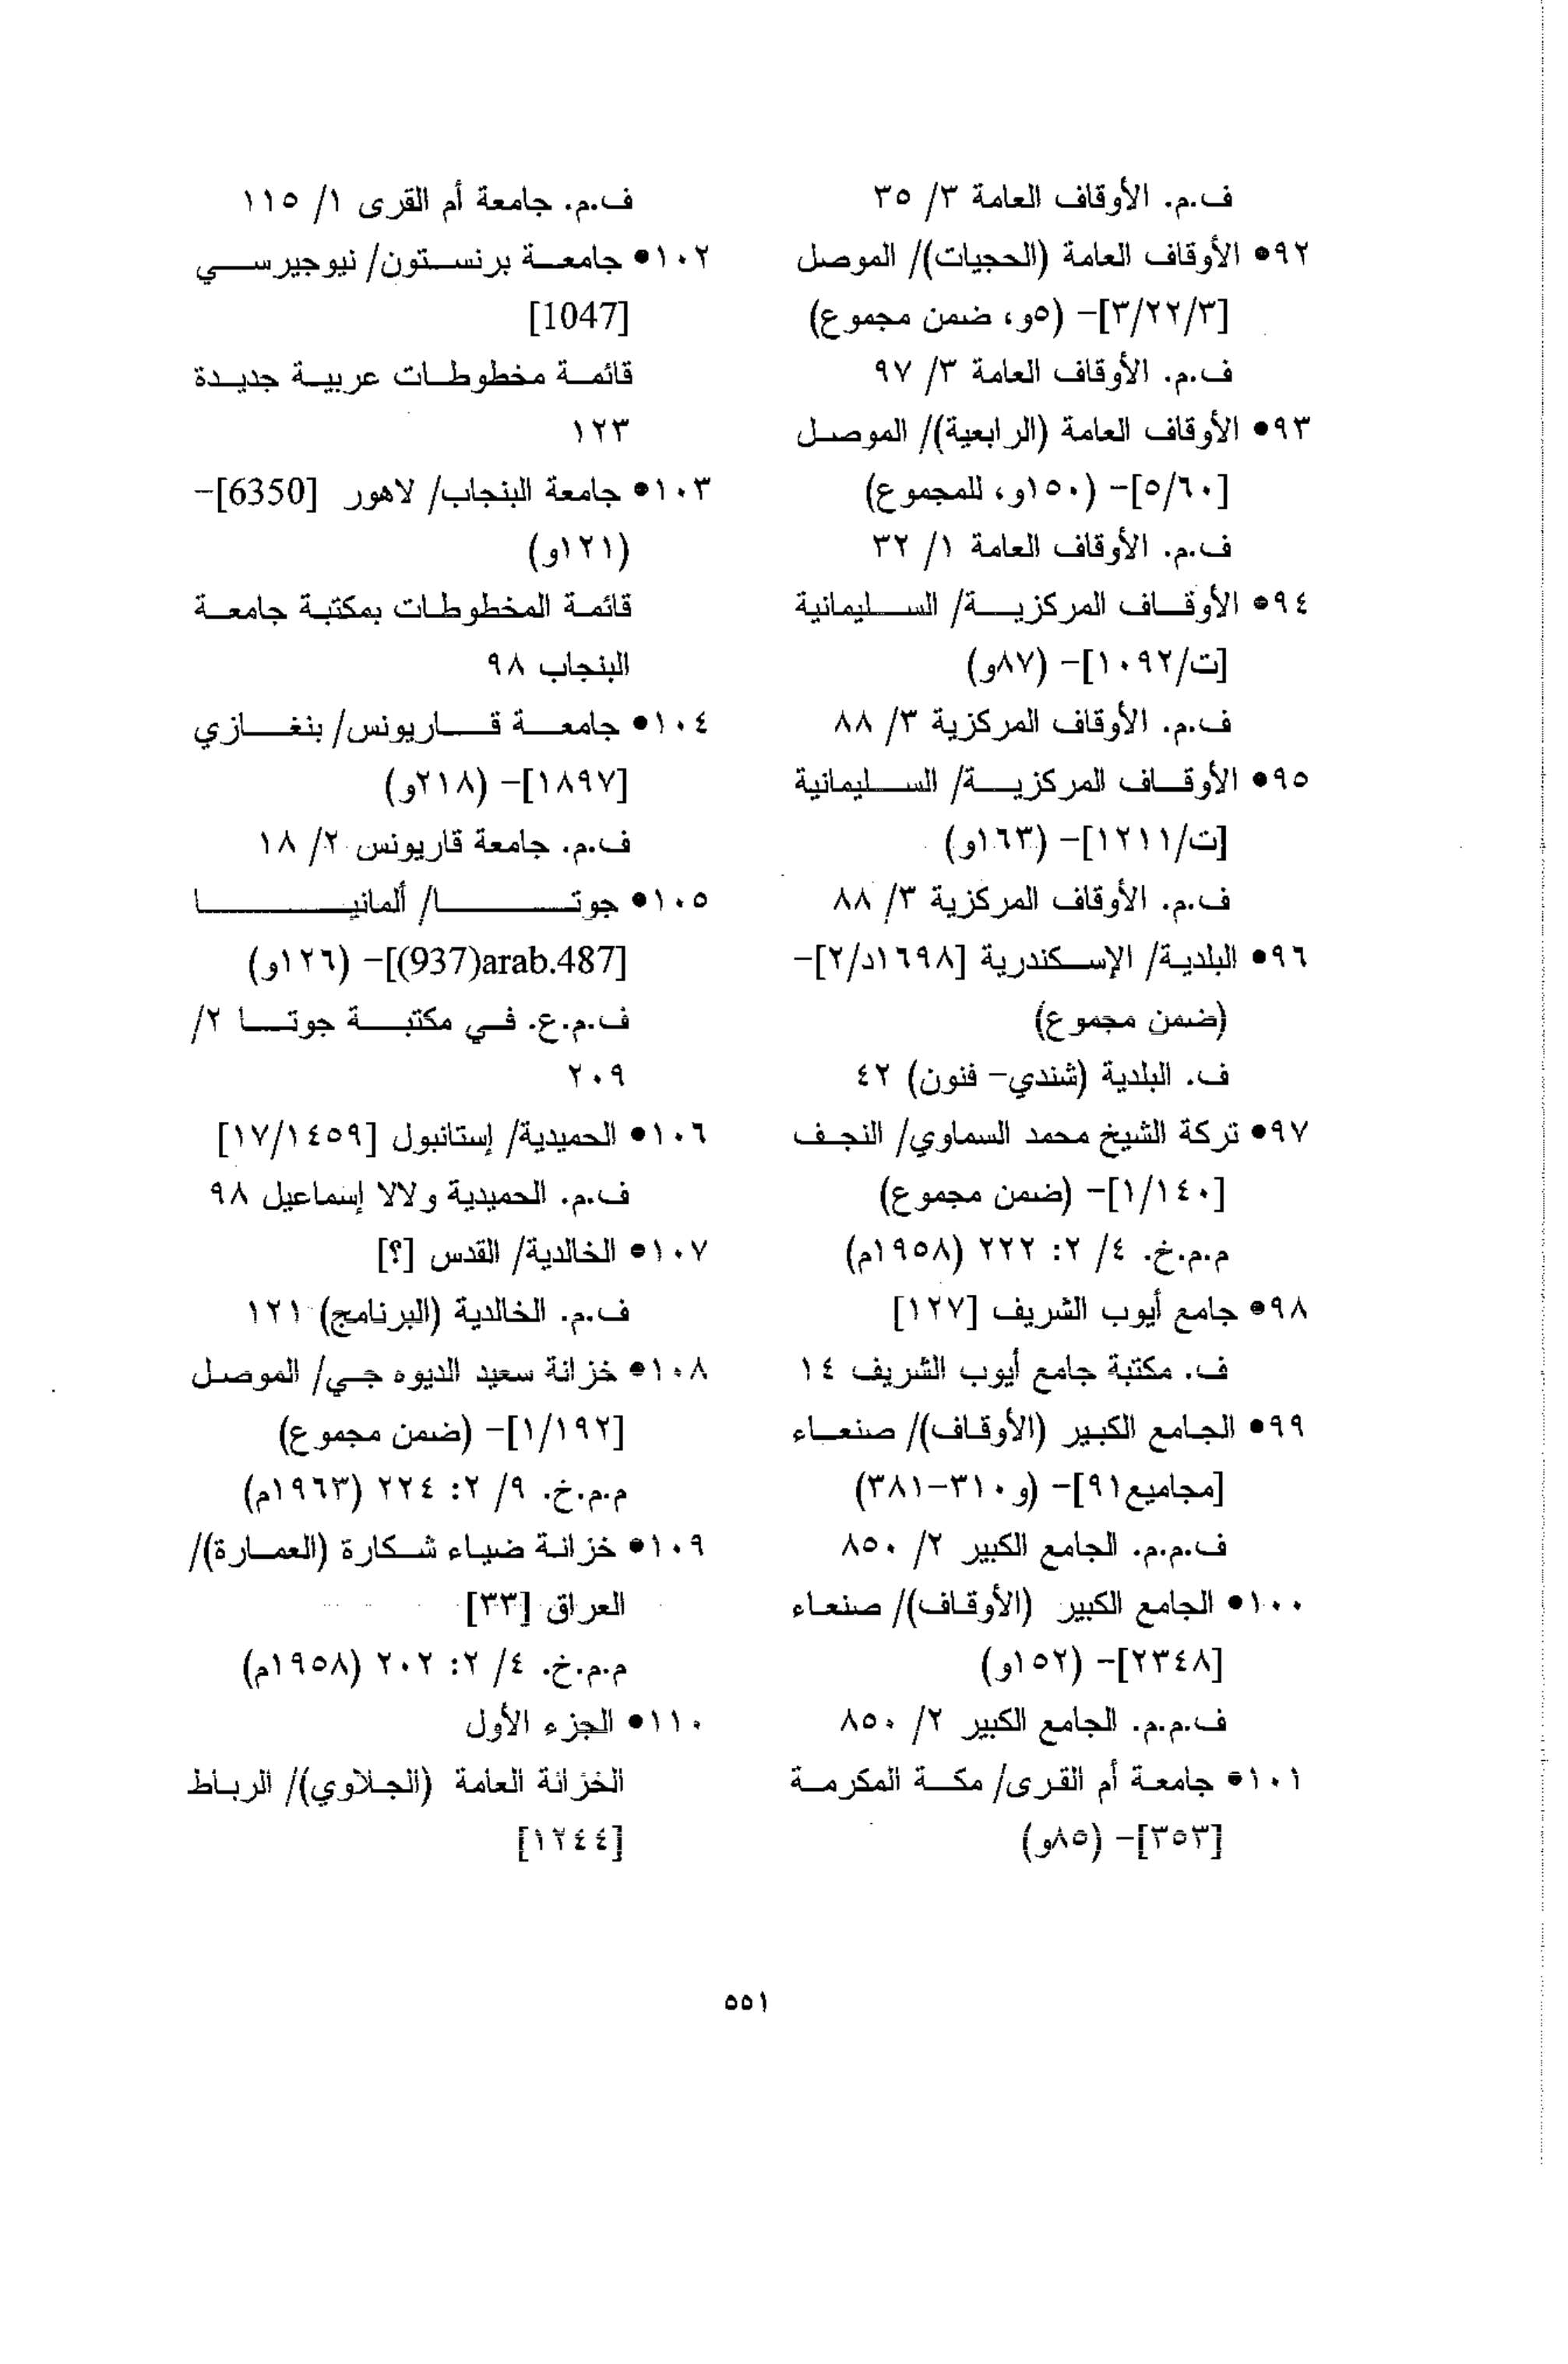 ف.م. الأوقاف العامة ٣/ ٣٥
٩٢• الأوقاف العامة (الحجيات)/ الموصل
[٣/٢٢/٣]- (٥و، ضمن مجموع)
ف.م. الأوقاف العامة ٣/ ٩٧
٩٣• الأوقاف العامة (الرابعية)/ الموصل
[٥/٦٠]- (١٥٠و، للمجموع)
ف.م. الأوقاف العامة ١/ ٣٢
٩٤• الأوقاف المركزية/ السليمانية
[ت/١٠٩٢]- (٨٧و)
ف.م. الأوقاف المركزية ٣/ ٨٨
٩٥• الأوقاف المركزية/ السليمانية
[ت/١٢١١]- (١٦٣و)
ف.م. الأوقاف المركزية ٣/ ٨٨
٩٦• البلدية/ الإسكندرية [١٦٩٨د/٢]-
(ضمن مجموع)
ف. البلدية (شندي- فنون) ٤٢
٩٧• تركة الشيخ محمد السماوي/ النجف
[١/١٤٠]- (ضمن مجموع)
م.م.خ. ٤/ ٢: ٢٢٢ (١٩٥٨م)
٩٨• جامع أيوب الشريف [١٢٧]
ف. مكتبة جامع أيوب الشريف ١٤
٩٩• الجامع الكبير (الأوقاف)/ صنعاء
[مجاميع٩١]- (و٣١٠-٣٨١)
ف.م.م. الجامع الكبير ٢/ ٨٥٠
١٠٠• الجامع الكبير (الأوقاف)/ صنعاء
[٢٣٤٨]- (١٥٢و)
ف.م.م. الجامع الكبير ٢/ ٨٥٠
١٠١• جامعة أم القرى/ مكة المكرمة
[٣٥٣]- (٨٥و)
ف.م. جامعة أم القرى ١/ ١١٥
١٠٢• جامعة برنستون/ نيوجيرسي
[1047]
قائمة مخطوطات عربية جديدة
١٢٣
١٠٣• جامعة البنجاب/ لاهور [6350]-
(١٢١و)
قائمة المخطوطات بمكتبة جامعة
البنجاب ٩٨
١٠٤• جامعة قاريونس/ بنغازي
[١٨٩٧]- (٢١٨و)
ف.م. جامعة قاريونس ٢/ ١٨
١٠٥• جوتا/ ألمانيا
[(937)arab.487]- (١٢٦و)
ف.م.ع. في مكتبة جوتا ٢/
٢٠٩
١٠٦• الحميدية/ إستانبول [١٧/١٤٥٩]
ف.م. الحميدية ولالا إسماعيل ٩٨
١٠٧• الخالدية/ القدس [؟]
ف.م. الخالدية (البرنامج) ١٢١
١٠٨• خزانة سعيد الديوه جي/ الموصل
[١/١٩٢]- (ضمن مجموع)
م.م.خ. ٩/ ٢: ٢٢٤ (١٩٦٣م)
١٠٩• خزانة ضياء شكارة (العمارة)/
العراق [٣٣]
م.م.خ. ٤/ ٢: ٢٠٢ (١٩٥٨م)
١١٠• الجزء الأول
الخزانة العامة (الجلاوي)/ الرباط
[١٢٤٤]
٥٥١